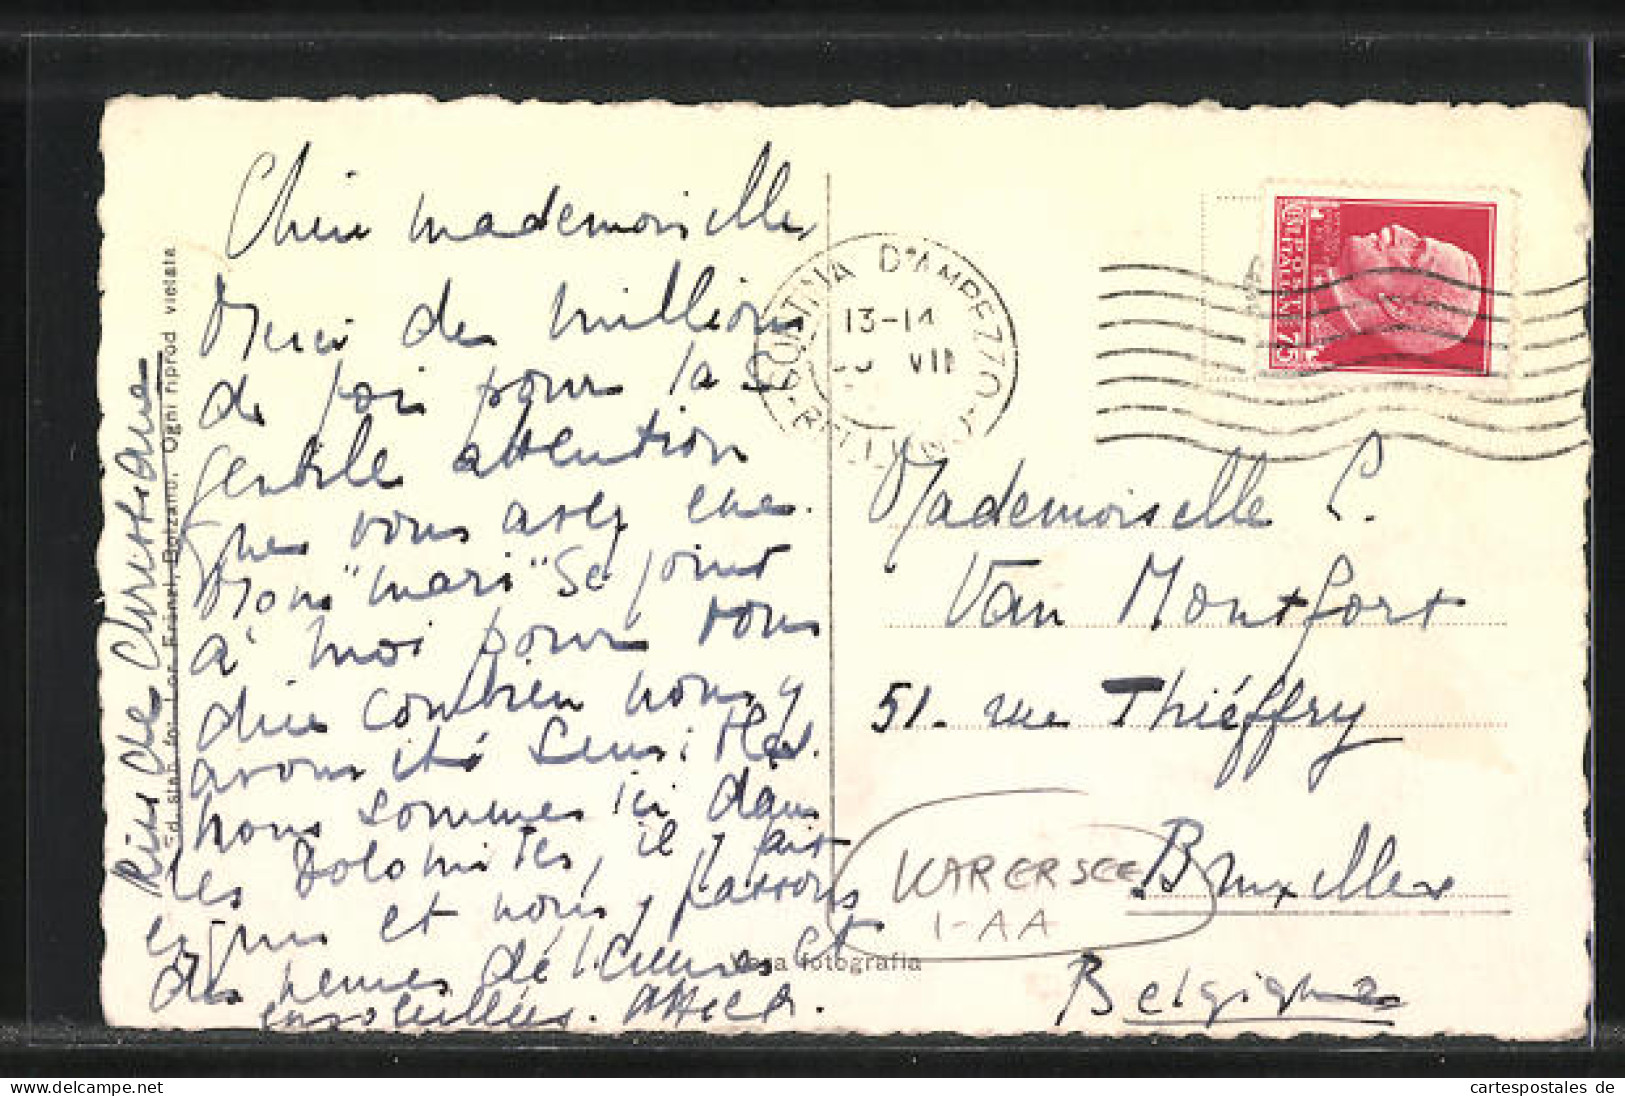 Chère mademoiselle
Merci des millions
de fois pour la si
gentille attention
que vous avez eue.
Mon "mari" se joint
à moi pour vous
dire combien nous y
avons été sensibles.
Nous sommes ici dans
les Dolomites, il y fait
exquis et nous y passons
des heures délicieuses et
ensoleillées.
Christiane
Ed. stab. fot. Lor. Fränzl, Bolzano. Ogni riprod vietata
CORTINA D'AMPEZZO
BELLUNO
13-14
VII
POSTE ITALIANE
75
Mademoiselle L.
Van Montfort
51. rue Thiéffry
Bruxelles
Belgique
KARERSEE
I-AA
Vera fotografia
cartespostales de